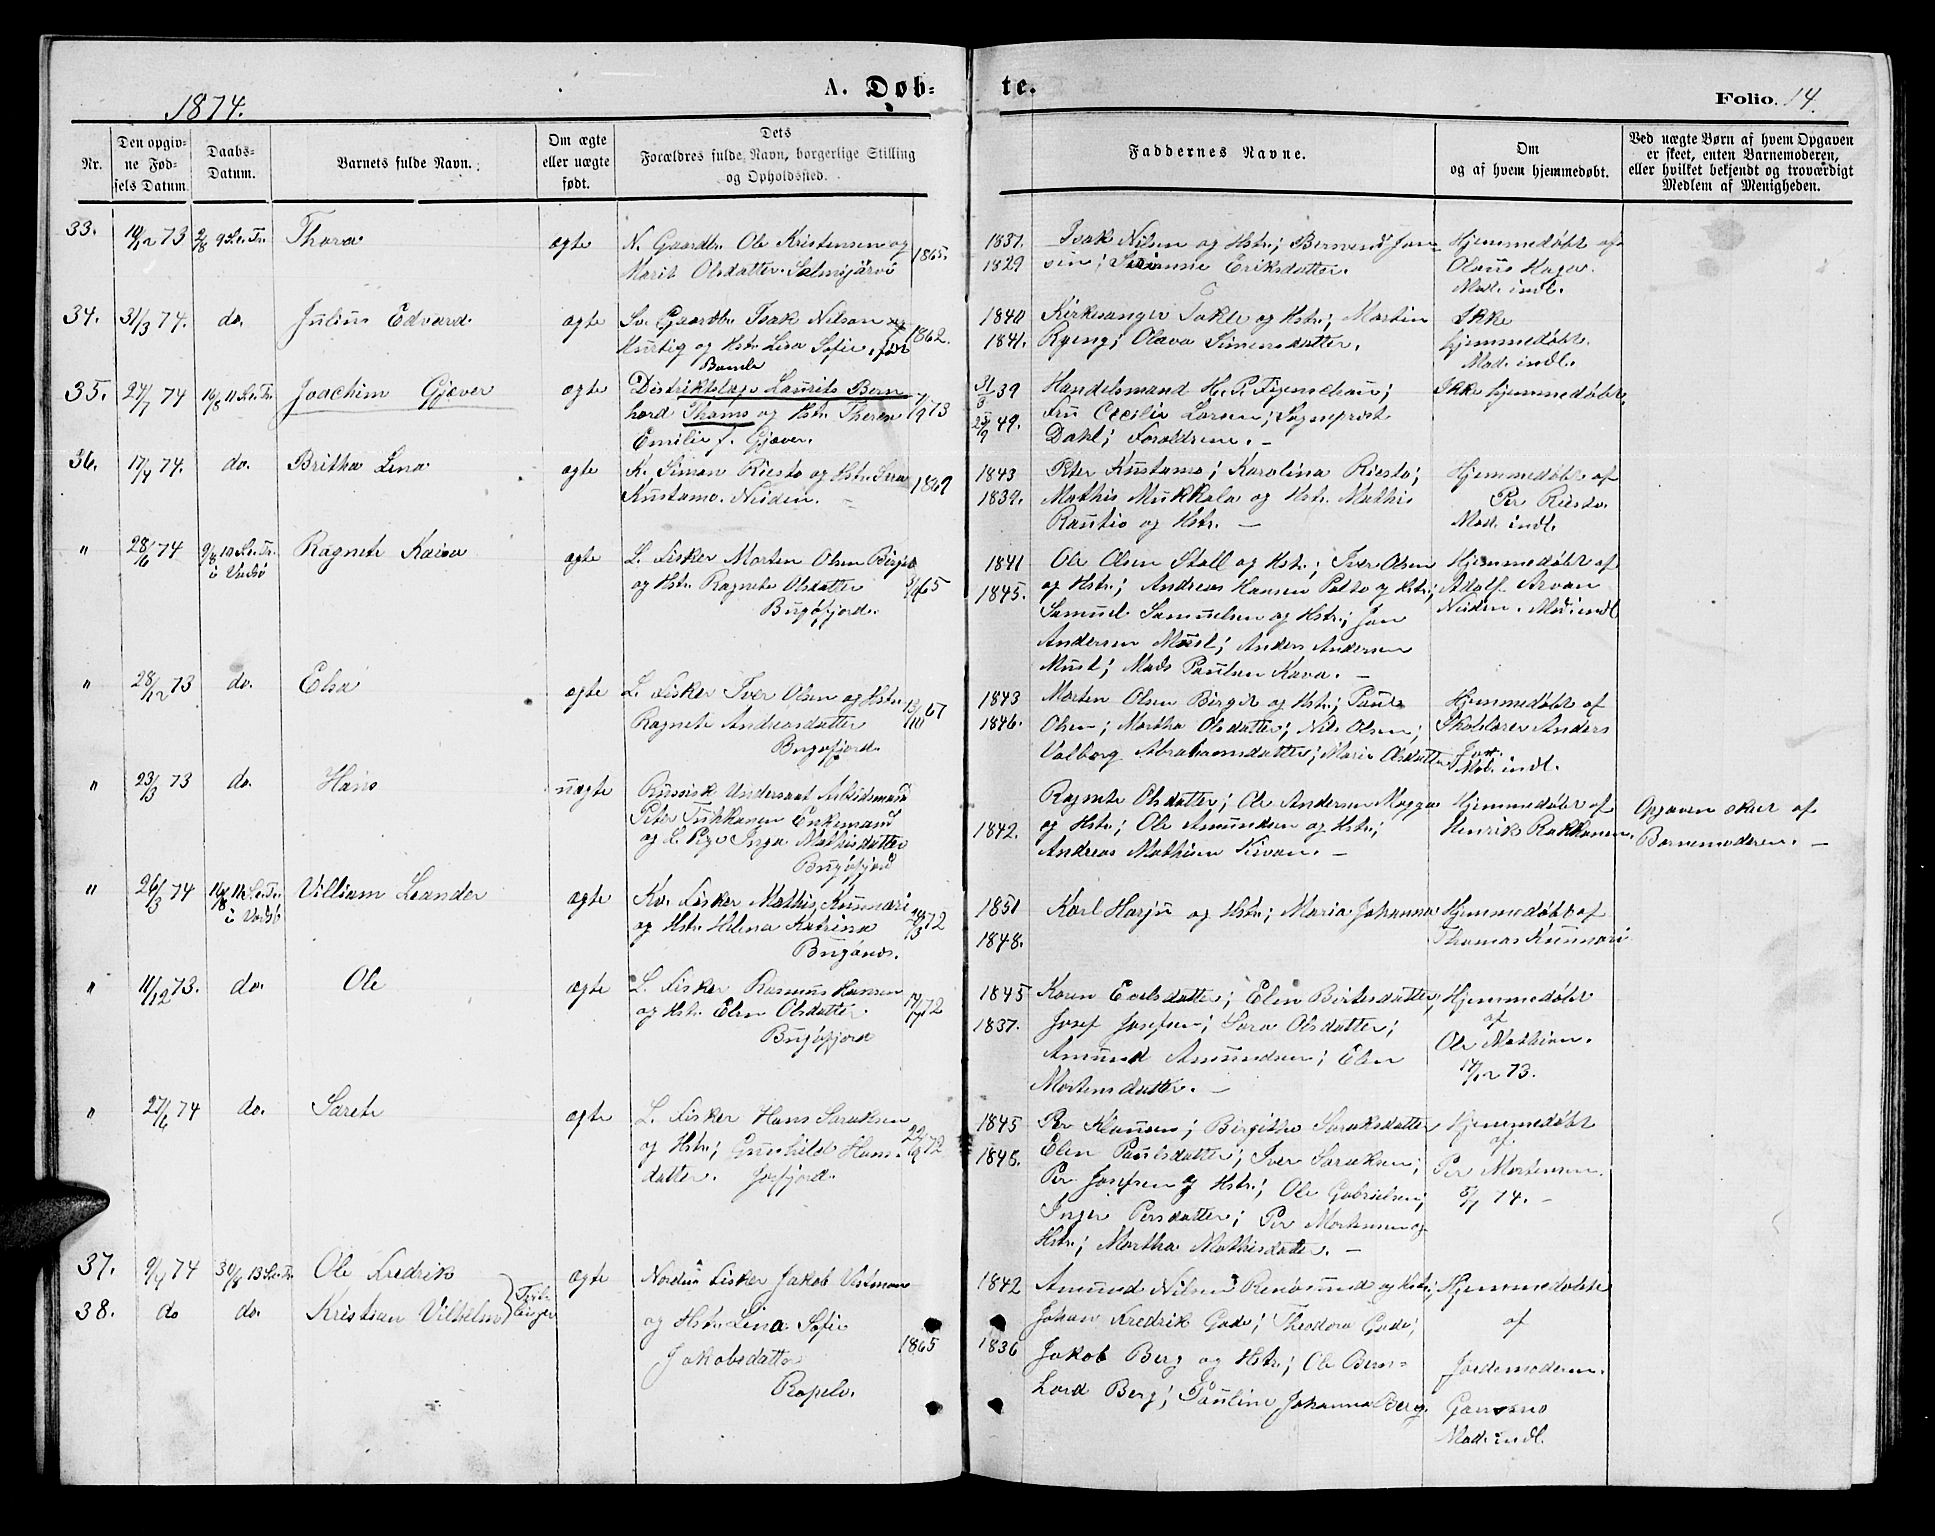 1874.
A. Døb-
te.
Folio. 14.
Nr.
Den opgiv-
ne Fød-
sels Datum.
Daabs-
Datum.
Barnets fulde Navn.
Om ægte
eller uægte
født.
Dets
Forældres fulde Navn, borgerlige Stilling
og Opholdssted.
Faddernes Navne.
Om
og af hvem hjemmedøbt.
Ved uægte Børn af hvem Opgaven
er skeet, enten Barnemoderen,
eller hvilket bekjendt og troværdigt
Medlem af Menigheden.
33.
10/12 73
2/8 9 S. e. Tr.
Thora
ægte
N. Gaardbr. Ole Kristensen og
Marit Olsdatter. Salmijärvi
1865.
1837.
1829
Isak Nilsen og Hstr; Bersvend Jon
sen; Susanne Eriksdatter.
Hjemmedøbt af
Olaus Hager.
Mod. indl.
34.
31/3 74.
do.
Julius Edvard
ægte
Sv. Gaardbr. Isak Nilsen
Hurtig og Hstr. Lisa Sofie
1862.
1840
1841.
Kirkesanger Takle og Hstr; Martin
Ryeng; Olava Simonsdatter.
Ikke
hjemmedøbt.
Mod. indl.
35.
27/7 74
16/8 11 S. e. Tr.
Joachim Gjæver
ægte
Distriktslæge Laurits Bern
hard Thams og Hstr. Therese
Emilie f. Gjæver.
31/3 39
25/9 49.
Handelsmand H. P. Figenschau;
Fru Cecilie Larsen; Sogneprest
Dahl; Forældrene. -
Ikke hjemmedøbt.
36.
17/4 74.
do.
Britha Lina
ægte
K. Simon Riesto og Hstr. Lisa
Kustamo. Neiden. -
1869
1843
1839.
Peter Kustamo; Karolina Riesto;
Mathis Mukkala og Hstr. Mathis
Rautio og Hstr. -
Hjemmedøbt af
Per Riesto.
Mod. indl.
"
28/6 74
9/8 10 S. e. Tr.
i Vadsø
Ragnete Kaisa
ægte
L. Fisker Morten Olsen Birget
og Hstr. Ragnete Olsdatter
Bugøfjord.
1841
1845.
Ole Olsen Stall og Hstr; Iver Olsen
og Hstr; Andreas Hansen Palto og Hstr;
Samuel Samuelsen og Hstr; Jon
Andersen Must; Anders Andersen
Must; Mads Paulsen Kava. -
Hjemmedøbt af
Adolf Arvan
Neiden. Mod. indl
"
28/12 73
do.
Elsa
ægte
L. Fisker Iver Olsen og Hstr.
Ragnete Andreasdatter
Bugøfjord.
13/10 67
1843
1846.
Morten Olsen Birget og Hstr; Paul
Olsen; Martha Olsdatter; Nils Olsen;
Valborg Abrahamsdatter; Marie Olsdatter
Hjemmedøbt af
Skolelærer Anders
Mod. indl.
"
23/3 73
do.
Hans
uægte
Russisk Undersaat Arbeidsmand
Peter Tirkkanen Enkemand
og L. Pige Inga Mathisdatter
Bugøfjord
1842.
Ragnete Olsdatter; Ole Andersen Magga
og Hstr; Ole Amundsen og Hstr;
Andreas Mathisen Kivan. -
Hjemmedøbt af
Henrik Rakkanen.
Opgaven skeet af
Barnemoderen. -
"
26/3 74
16/8 11 S. e. Tr.
i Vadsø
Villiam Leander
ægte
Kv. Fisker Mathis Kunnari
og Hstr. Helena Katrina
Bugønes.
1851
1848.
Karl Harju og Hstr; Maria Johanna
Hjemmedøbt af
Thomas Kunnari
"
11/12 73.
do.
Ole
ægte
L. Fisker Rasmus Hansen
og Hstr. Elen Olsdatter
Bugøfjord
17/7 72
1845
1837.
Karen Evelsdatter; Elen Birtesdatter;
Josef Josefsen; Sara Olsdatter;
Amund Amundsen; Elen
Mortensdatter. -
Hjemmedøbt
af
Ole Mathisen.
17/12 73.
"
27/6 74
do.
Sarete
ægte
L. Fisker Hans Saraksen
og Hstr; Gunhild Hans
datter. Jarfjord.
22/9 72
1845
1848.
Per Klausen; Birgitte Saraksdatter
Elen Paulsdatter; Iver Saraksen;
Per Josefsen og Hstr; Ole Gabrielsen;
Inger Persdatter; Per Mortensen og
Hstr; Martha Mathisdatter. -
Hjemmedøbt
af
Per Mortensen.
5/7 74. -
37.
9/4 74
30/8 13 S. e. Tr.
Ole Fredrik
ægte
Nordm. Fisker Jakob Vestman
1842
Amund Nilsen Renøsund og Hstr;
Hjemmedøbte
38.
do
do.
Kristian Vilhelm
Tvil-
linger
og Hstr. Lina Sofie
Jakobsdatter
Ropelv.
1865
1836
Johan Fredrik Gade; Theodora Gade;
Jakob Berg og Hstr; Ole Bern-
hard Berg; Pauline Johanna Berg.
af
Jordemoderen.
Mod. indl.